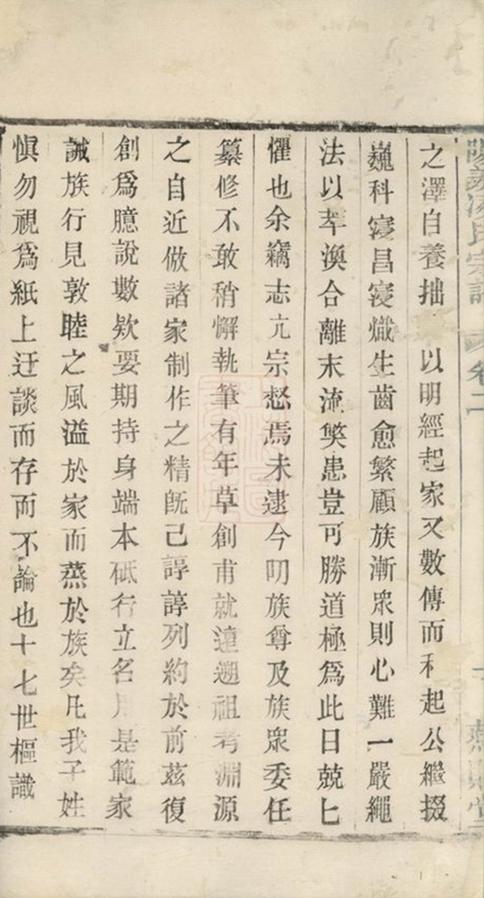 氏宗譜 卷二
之澤自養拙 以明經起家又數傳而和起公繼掇
巍科寖昌寖熾生齒愈繁顧族漸衆則心難一嚴繩
法以萃渙合離末流獘患豈可勝道極爲此日兢匕
懼也余竊志亢宗愁焉未逮今叨族尊及族衆委任
纂修不敢稍懈執筆有年草創甫就遠遡祖考淵源
之自近倣諸家制作之精旣已諄諄列約於前茲復
創爲臆說數欵要期持身端本砥行立名用是範家
誡族行見敦睦之風溢於家而蒸於族矣凡我子姓
愼勿視爲紙上迂談而存而不論也十七世樞識